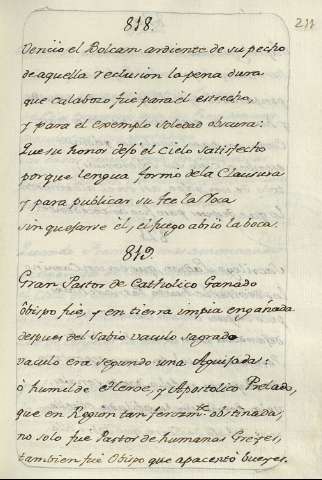 818.
211
Venciò el Bolcan ardiente de su pecho
de aquella reclusion la pena dura
que calabozo fuè para èl estrecho,
y para el exemplo soledad obscura:
Que su honor dejò el Cielo satisfecho
porque lengua formò de la Clausura
y para publicar su fee la Roca
sin quejarse èl, el fuego abriò la boca.
819.
Gran Pastor de Catholico Ganado
Obispo fuè, y en tierra impia engañada
despues del sabio vaculo sagrado
vaculo era segundo una Aguijada:
ò humilde Heroe, y Apostolico Prelado,
que en Region tan ferozm.te obstinada,
no solo fuè Pastor de humanas Greyes,
tambien fuè Obispo que apacentò bueyes.